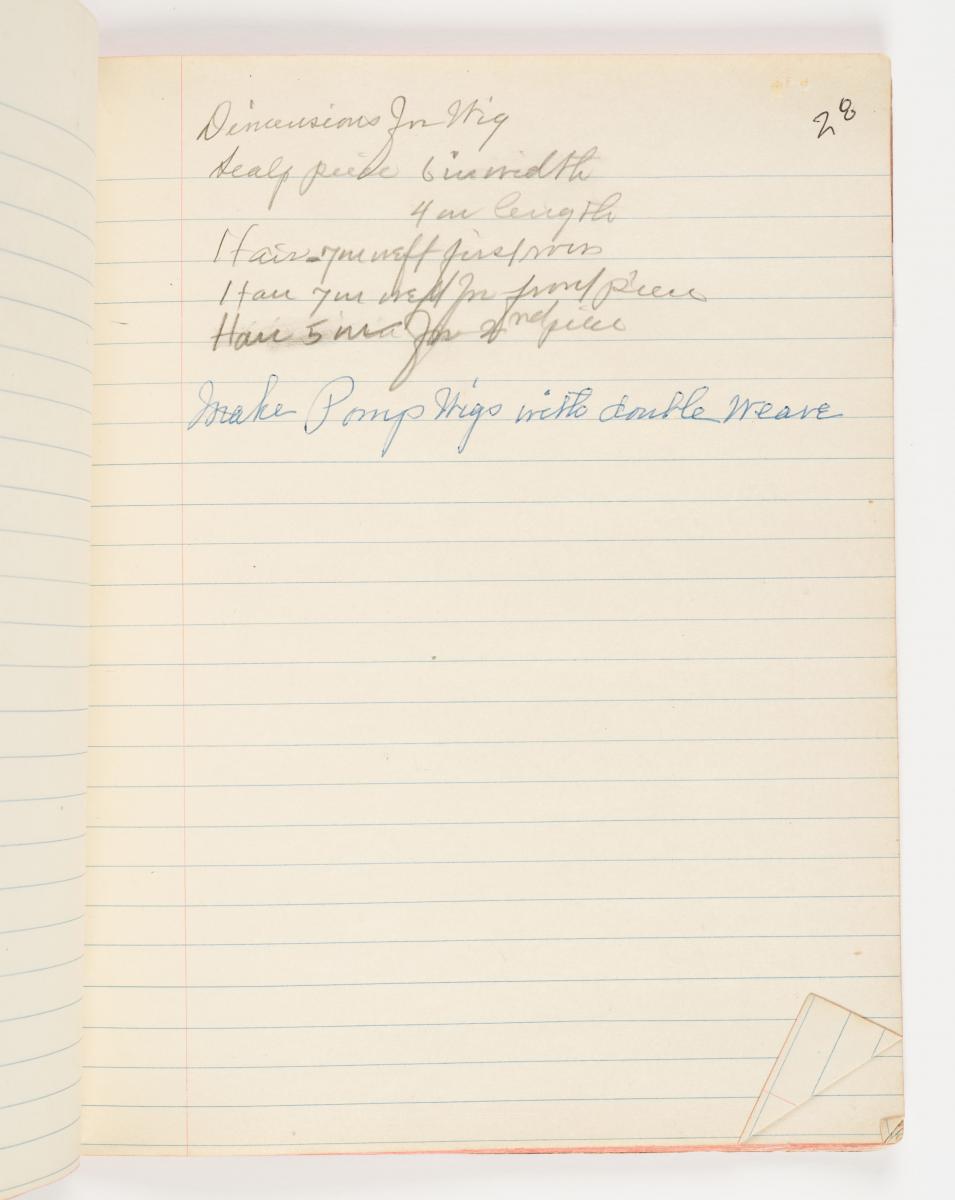 28
Dimensions for Wig
Scalp piece 6 in width
4 in length
Hair - 7 in weft first row
Hair 7 in weft for front piece
Hair 5 in for 2nd piece
Make Pomp Wigs with double weave